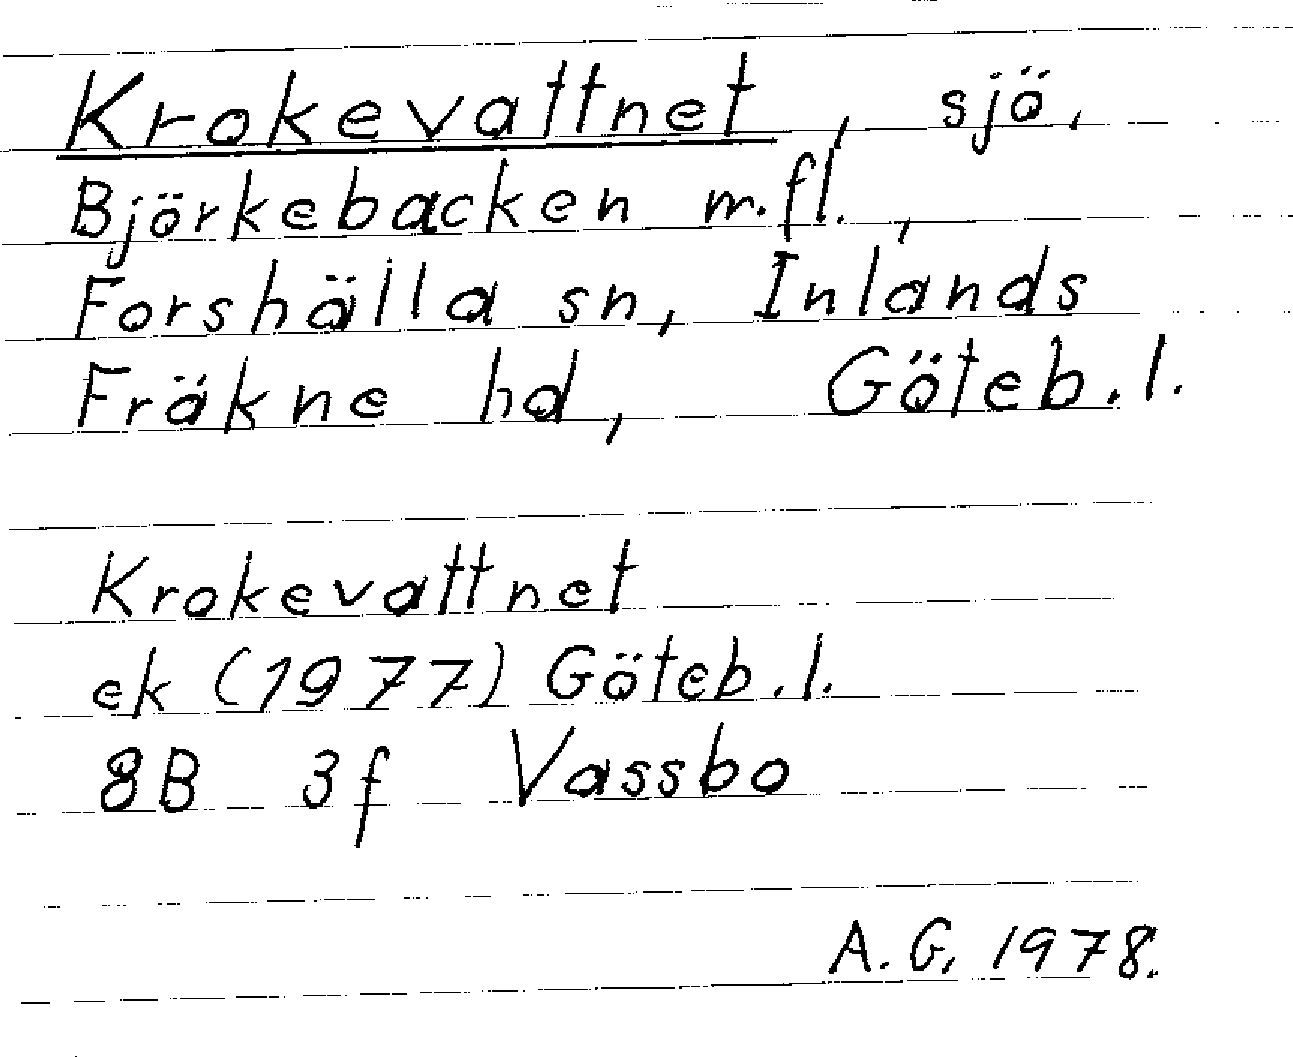 Krokevattnet, sjö.
Björkebacken m.fl.,
Forshälla sn, Inlands
Fräkne hd, Göteb.l.
Krokevattnet
ek (1977) Göteb.l.
8B 3f Vassbo
A.G. 1978.